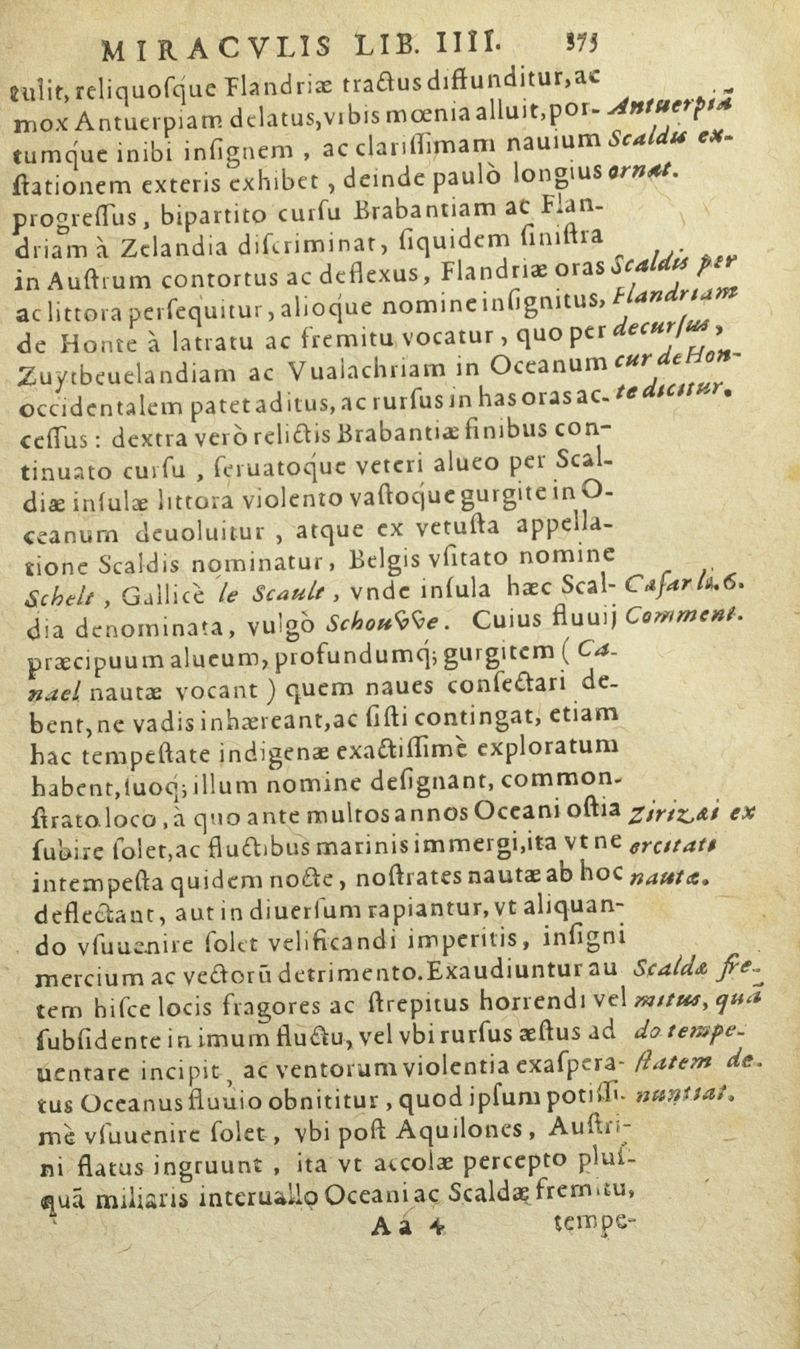 MIRACVLIS LIB. IIII. 375
tulit, reliquoſque Flandriæ tractus diffunditur, ac
mox Antuerpiam delatus, vrbis mœnia alluit, por- Antuerpiā
tumque inibi inſignem , ac clariſſimam nauium Scaldis ex-
ſtationem exteris exhibet , deinde paulò longius ornat.
progreſſus, bipartito curſu Brabantiam ac Flan-
driam à Zelandia diſcriminat, ſiquidem ſiniſtra
in Auſtrum contortus ac deflexus, Flandriæ oras Scaldis per
ac littora perſequitur, alioque nomine inſignitus, Flandriam
de Honte à latratu ac fremitu vocatur , quo per decurſus,
Zuytbeuelandiam ac Vualachriam in Oceanum cur de Hon-
occidentalem patet aditus, ac rurſus in has oras ac- te dicitur.
ceſſus : dextra verò relictis Brabantiæ finibus con-
tinuato curſu , ſeruatoque veteri alueo per Scal-
diæ inſulæ littora violento vaſtoque gurgite in O-
ceanum deuoluitur , atque ex vetuſta appella-
tione Scaldis nominatur, Belgis vſitato nomine
Schelt , Gallicè le Scault , vnde inſula hæc Scal- Cæſar li.6.
dia denominata, vulgò Schouvve. Cuius fluuij Comment.
præcipuum alueum, profundumq; gurgitem ( Ca-
nael nautæ vocant ) quem naues conſectari de-
bent, ne vadis inhæreant, ac ſiſti contingat, etiam
hac tempeſtate indigenæ exactiſſimè exploratum
habent, ſuoq; illum nomine deſignant, common-
ſtrato loco , à quo ante multos annos Oceani oſtia Zirizæi ex
ſubire ſolet, ac fluctibus marinis immergi, ita vt ne ercitati
intempeſta quidem nocte , noſtrates nautæ ab hoc nautæ.
deflectant, aut in diuerſum rapiantur, vt aliquan-
do vſuuenire ſolet velificandi imperitis, inſigni
mercium ac vectorū detrimento. Exaudiuntur au Scaldæ fre-
tem hiſce locis fragores ac ſtrepitus horrendi vel mitus, qua
ſubſidente in imum fluctu, vel vbi rurſus æſtus ad do tempe-
uentare incipit, ac ventorum violentia exaſpera- ſtatem de-
tus Oceanus fluuio obnititur , quod ipſum potiſſi- nuntiat.
mè vſuuenire ſolet , vbi poſt Aquilones , Auſtri-
ni flatus ingruunt , ita vt accolæ percepto pluſ-
quā miliaris interuallo Oceani ac Scaldæ fremitu,
Aa 4 tempe-